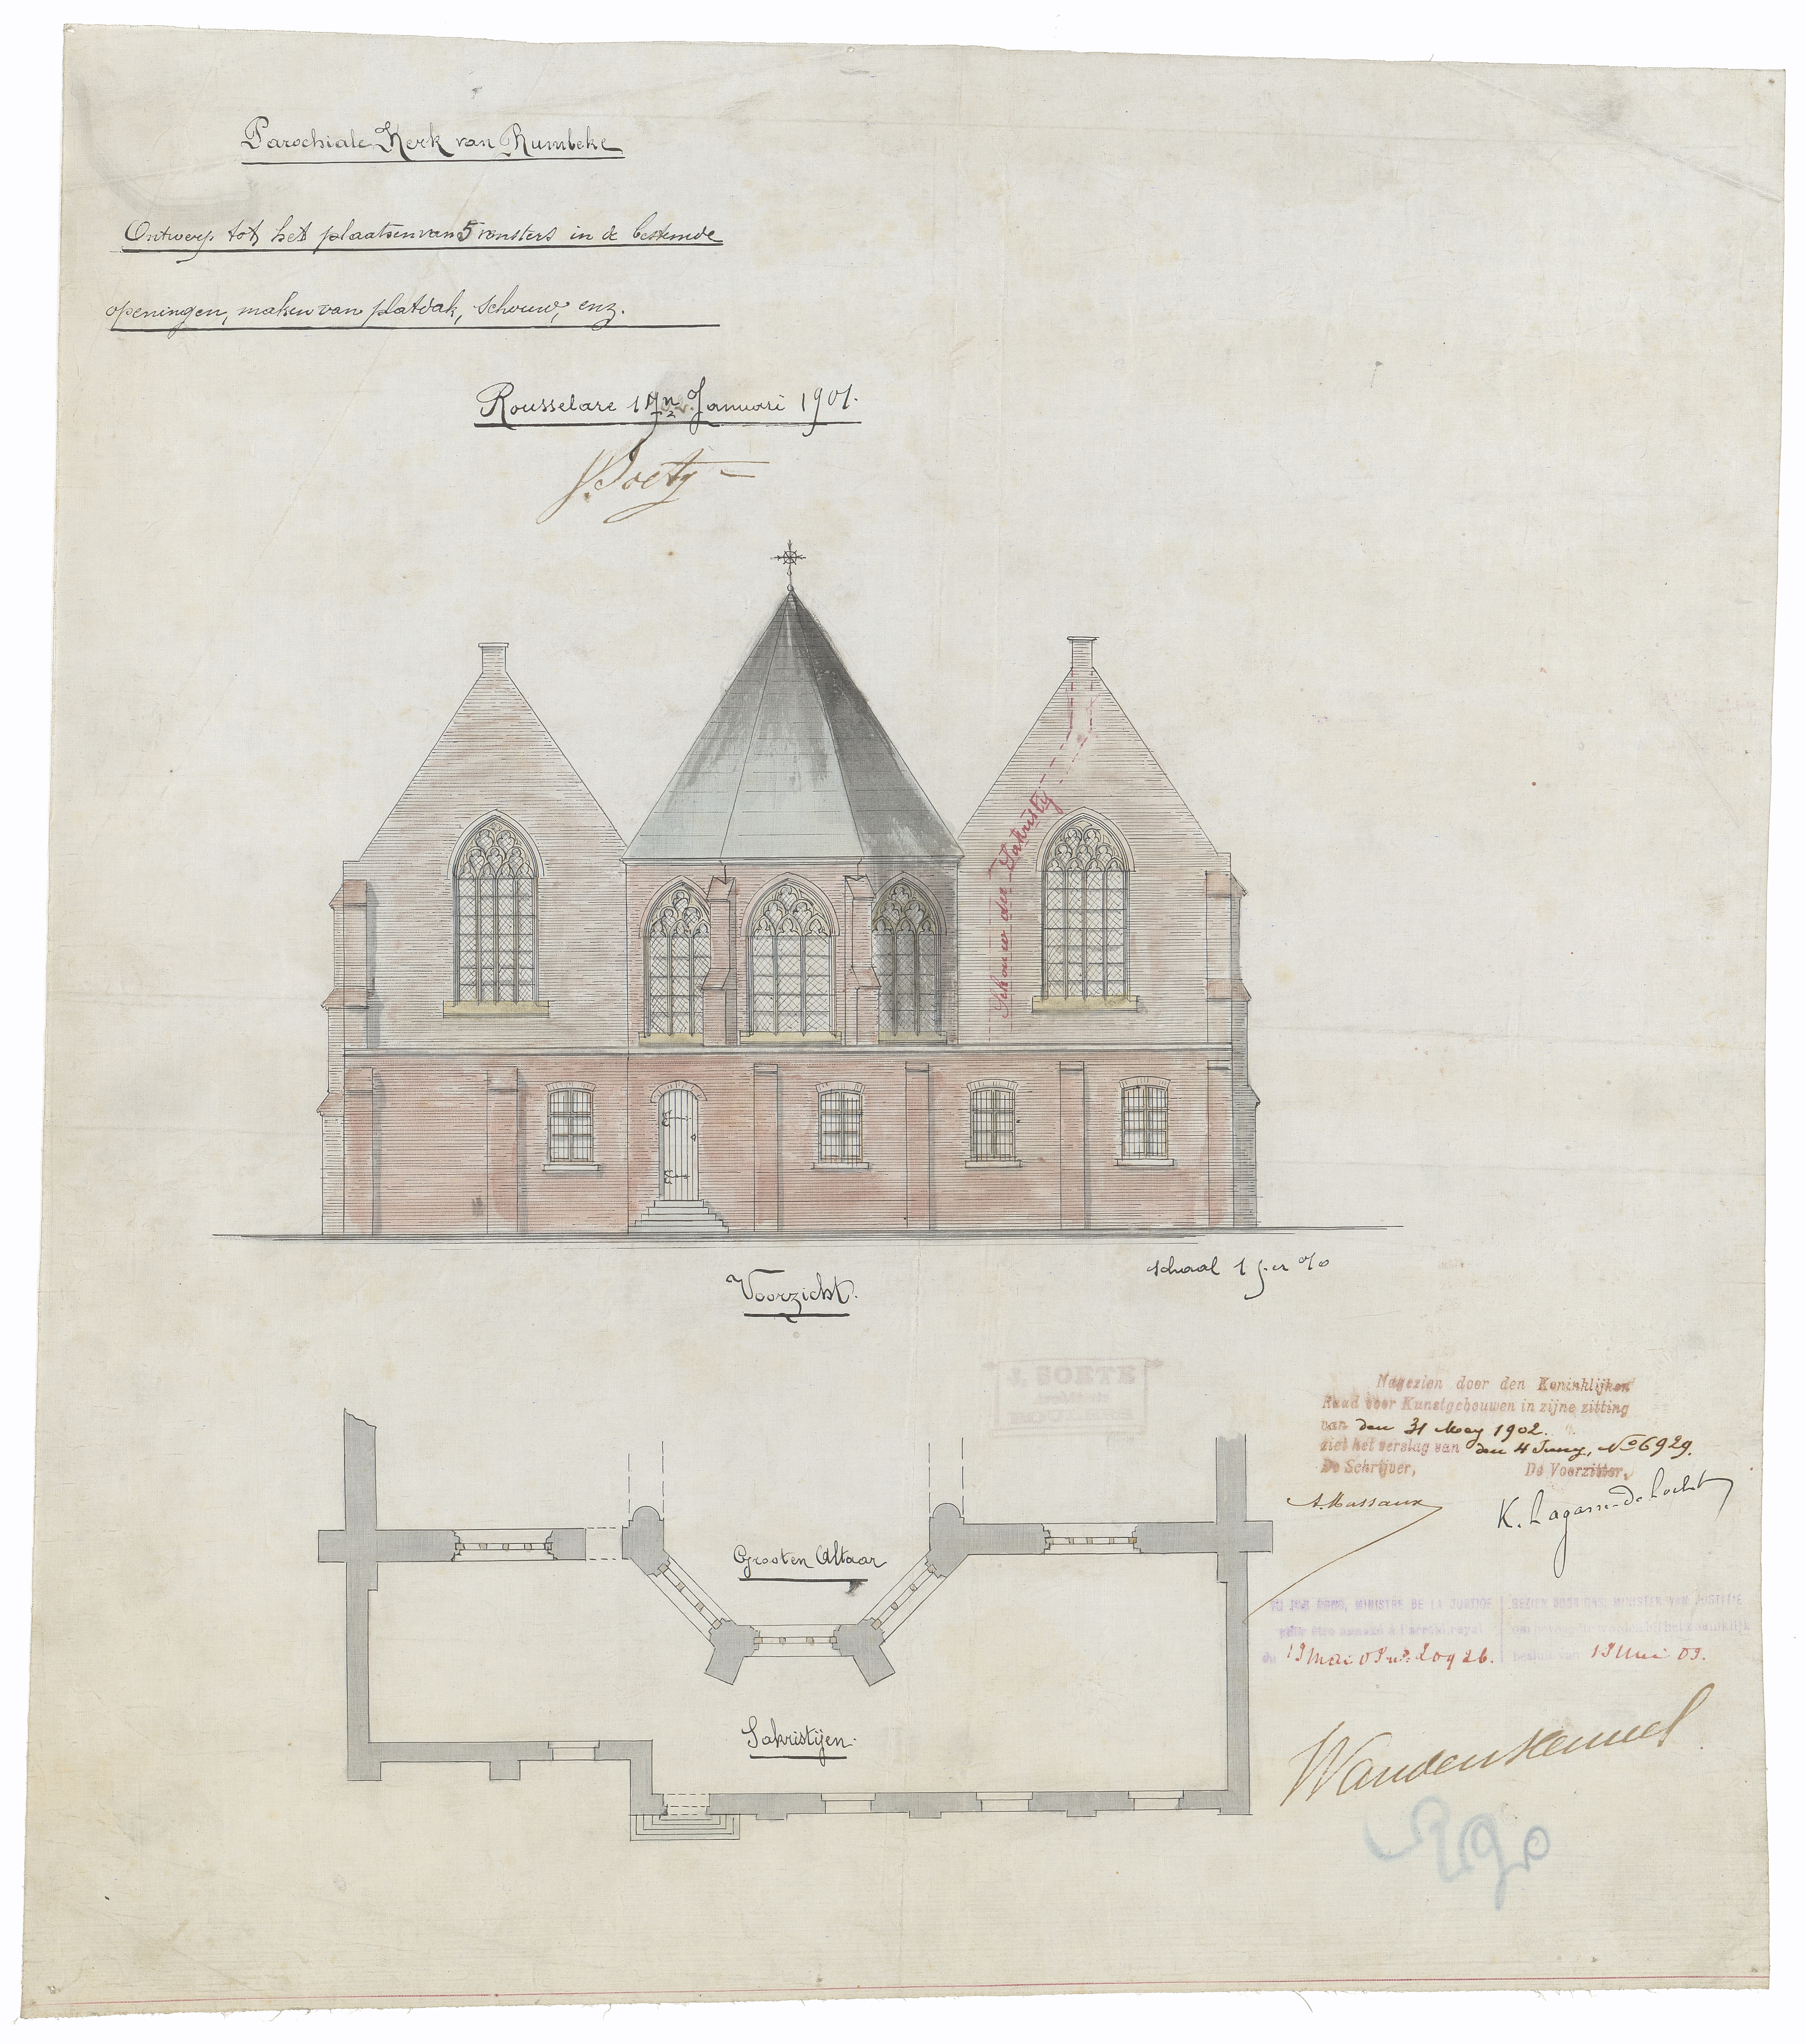 Parochiale Kerk van Rumbeke
Ontwerp tot het plaatsen van 5 vensters in de bestemde
openingen, maken van platdak, schouw, enz.
Rousselare 17n Januari 1901.
J. Soete
Schouw der Sakristij
schaal 1 per %
Voorzicht.
J. SOETE
Nagezien door den Koninklijken
Raad voor Kunstgebouwen in zijne zitting
van den 31 Mey 1902.
ziet het verslag van den 4 Juny, No 6929.
De Schrijver, De Voorzitter,
A. Massaux K. Lagasse-de Locht
Grooten Altaar
MINISTRE DE LA JUSTICE GEZIEN DOOR ONS, MINISTER VAN JUSTITIE
pour être annexé à l'arrêté royal
du 19 Mai 03 no 20926. besluit van 19 Mei 03.
Sakristijen.